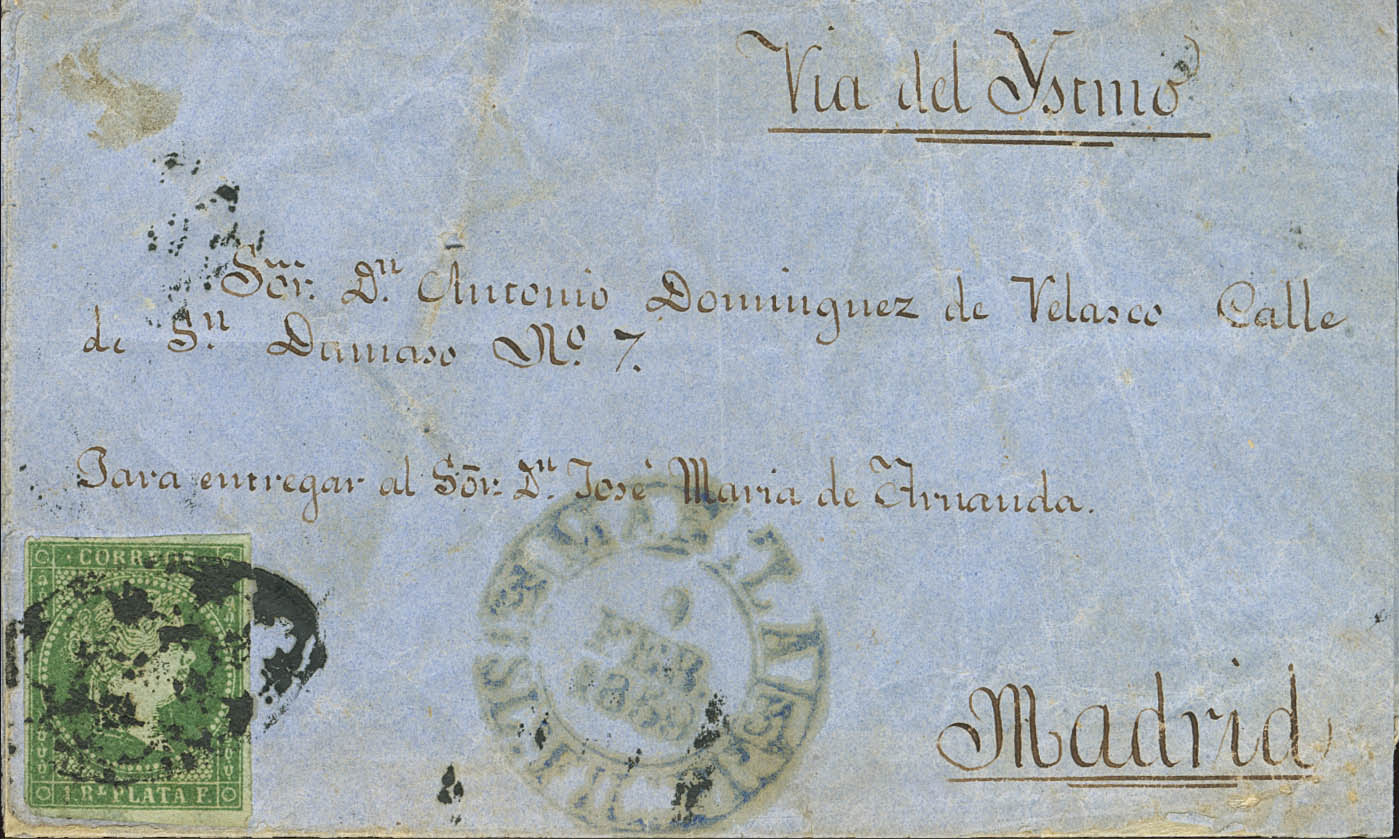 Via del Ystmo
Sor. Dn. Antonio Dominguez de Velasco Calle
de Sn. Damaso No. 7.
Para entregar al Sōr. Dn. José Maria de Arnanda.
CORREOS
1. Rl. PLATA F.
9
FEB.
1859
Madrid